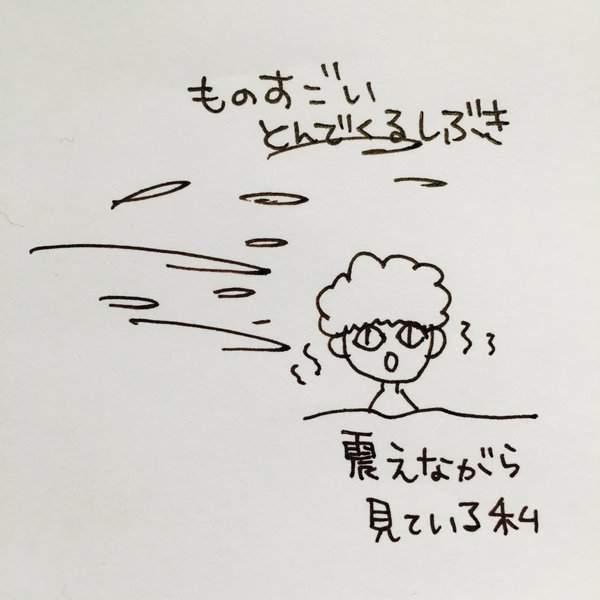 ものすごい
とんでくるしぶき
震えながら
見ている私